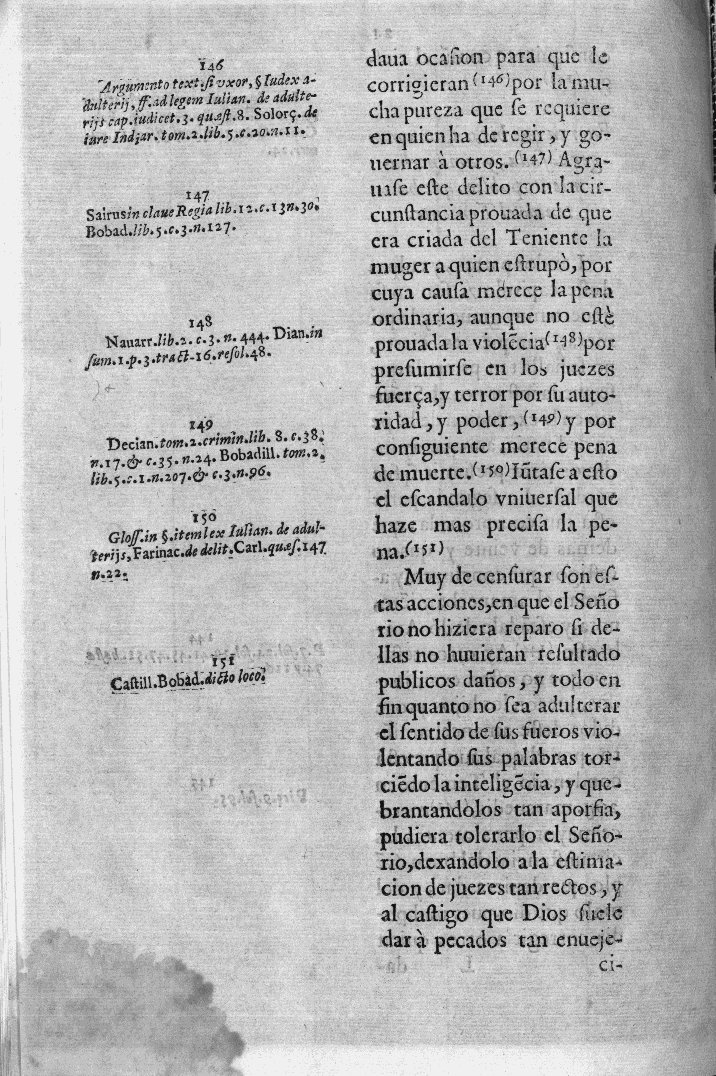 146
Argumento text. si vxor, § Iudex a-
dulterij, ff. ad legem Iulian. de adulte-
rijs cap. iudicet. 3. quæst. 8. Solorç. de
iure Indiar. tom. 2. lib. 5. c. 20. n. 11.
147
Sairus in claue Regia lib. 12. c. 13 n. 30.
Bobad. lib. 5. c. 3. n. 127.
148
Nauarr. lib. 2. c. 3. n. 444. Dian. in
sum. 1. p. 3. tract. 16. resol. 48.
149
Decian. tom. 2. crimin. lib. 8. c. 38.
n. 17. & c. 35. n. 24. Bobadill. tom. 2.
lib. 5. c. 1. n. 207. & c. 3. n. 96.
150
Gloss. in §. item lex Iulian. de adul-
terijs, Farinac. de delit. Carl. quæs. 147
n. 22.
151
Castill. Bobad. dicto loco.
daua ocasion para que le
corrigieran (146) por la mu-
cha pureza que se requiere
en quien ha de regir, y go-
uernar à otros. (147) Agra-
uase este delito con la cir-
cunstancia prouada de que
era criada del Teniente la
muger a quien estrupò, por
cuya causa merece la pena
ordinaria, aunque no estè
prouada la violẽcia (148) por
presumirse en los juezes
fuerça, y terror por su auto-
ridad, y poder, (149) y por
consiguiente merece pena
de muerte. (150) Iũtase a esto
el escandalo vniuersal que
haze mas precisa la pe-
na. (151)
Muy de censurar son es-
tas acciones, en que el Seño
rio no hiziera reparo si de-
llas no huuieran resultado
publicos daños, y todo en
fin quanto no sea adulterar
el sentido de sus fueros vio-
lentando sus palabras tor-
ciẽdo la inteligẽcia, y que-
brantandolos tan aporfia,
pudiera tolerarlo el Seño-
rio, dexandolo a la estima-
cion de juezes tan rectos, y
al castigo que Dios suele
dar à pecados tan enueje-
ci-